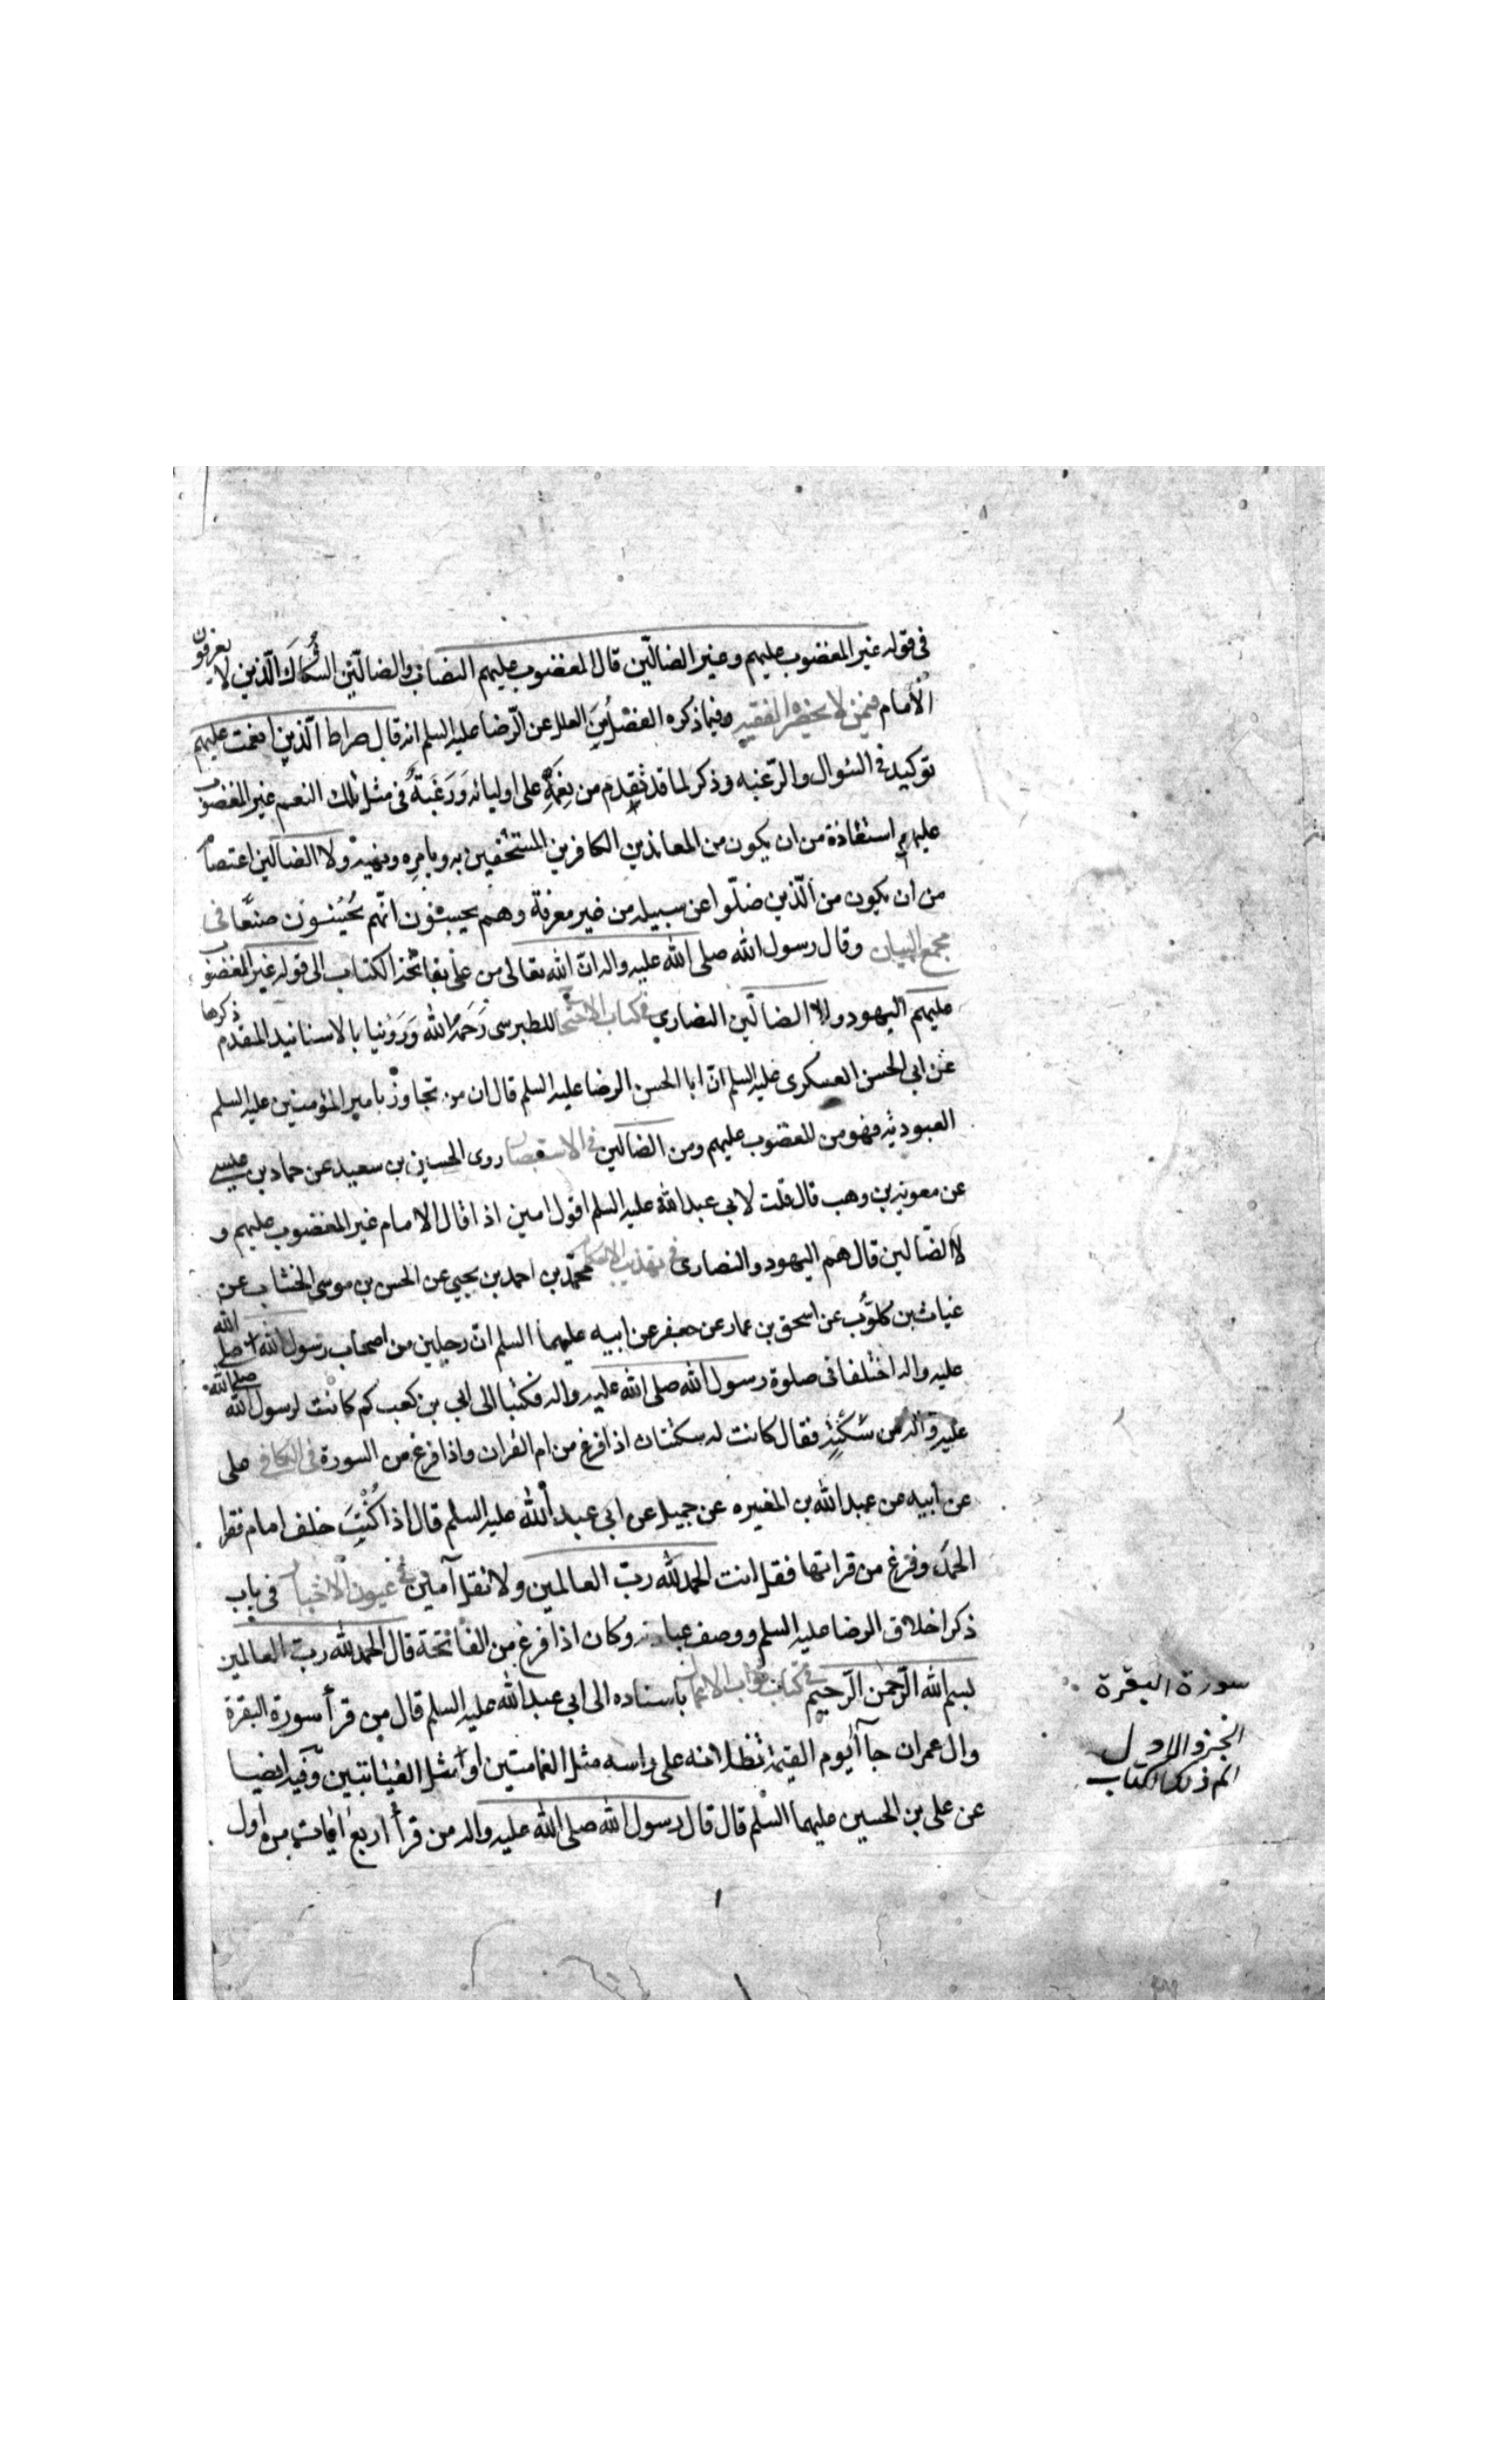 في قوله غير المغضوب عليهم وغير الضالّين قال المغضوب عليهم النصاب والضالّين الشكاك الّذين لا يعرفون
الامام فيمن لا يحضره الفقيه وفيما ذكره الفضل من العلل عن الرّضا عليه السلم انه قال صراط الّذين انعمت عليهم
توكيد في السّوال والرّغبه وذكر لما قد تقدم من نِعَمِهِ على اوليائه وَرَغبةً في مثل تلك النعم غير المغضوب
عليهم استعاذة من ان يكون من المعاندين الكافرين المستخفين به وبامره ونهيه ولا الضالّين اعتصاماً
من ان يكون من الّذين ضلّوا عن سبيله من غير معرفة وهم يحسبون انّهم يُحسنون صنعًا في
مجمع البيان وقال رسول الله صلى الله عليه واله انّ الله تعالى من علي بفاتحة الكتاب الى قوله غير المغضوب
عليهم اليهود ولا الضالّين النصارى في كتاب الاحتجاج للطبرسى رَحمه الله وَرَوينا بالاسانيد المتقدم ذكرها
عن ابي الحسن العسكرى عليه السلم انّ ابا الحسن الرضا عليه السلم قال ان من تجاوز بامير المؤمنين عليه السلم
العبوديّه فهو من المغضوب عليهم ومن الضالّين في الاستبصار روى الحسين بن سعيد عن حماد بن عيسى
عن معويه بن وهب قال قلت لابي عبد الله عليه السلم اقول امين اذا قال الامام غير المغضوب عليهم و
لا الضّالين قال هم اليهود والنصارى في تهذيب الاحكام محمّد بن احمد بن يحيى عن الحسن بن موسى الخشاب عن
غياث بن كلّوب عن اسحق بن عمار عن جعفر عن ابيه عليهما السلم انّ رجلين من اصحاب رسول الله صلى الله
عليه واله اختلفا في صلوة رسول الله صلى الله عليه واله فكتبا الى ابي بن كعب كم كانت لرسول الله صلى الله
عليه واله من سَكتةٍ فقال كانت له سكتتان اذا فرغ من ام القران واذا فرغ من السورة في الكافي على
عن ابيه عن عبد الله بن المغيره عن جميل عن ابي عبد الله عليه السلم قال اذا كُنتَ خلف امام فقرا
الحمدَ وفرغ من قراتها فقل انت الحمد لله ربّ العالمين ولا تقل آمين في عيون الاخبار في باب
ذكر اخلاق الرضا عليه السلم ووصف عبادته وكان اذا فرغ من الفاتحة قال الحمد لله ربّ العالمين
بسم الله الرّحمن الرّحيم في كتاب ثواب الاعمال باسناده الى ابي عبد الله عليه السلم قال من قرأ سورة البقرة
وال عمران جاآ يوم القيمة تظلانه على راسه مثل الغمامتين او مثل الغيابتين وفيه ايضيا
عن على بن الحسين عليهما السّلم قال قال رسول الله صلى الله عليه واله من قرأ اربع ايات من اول
سورة البقرة
الجزو الاول
الم ذلك الكتاب